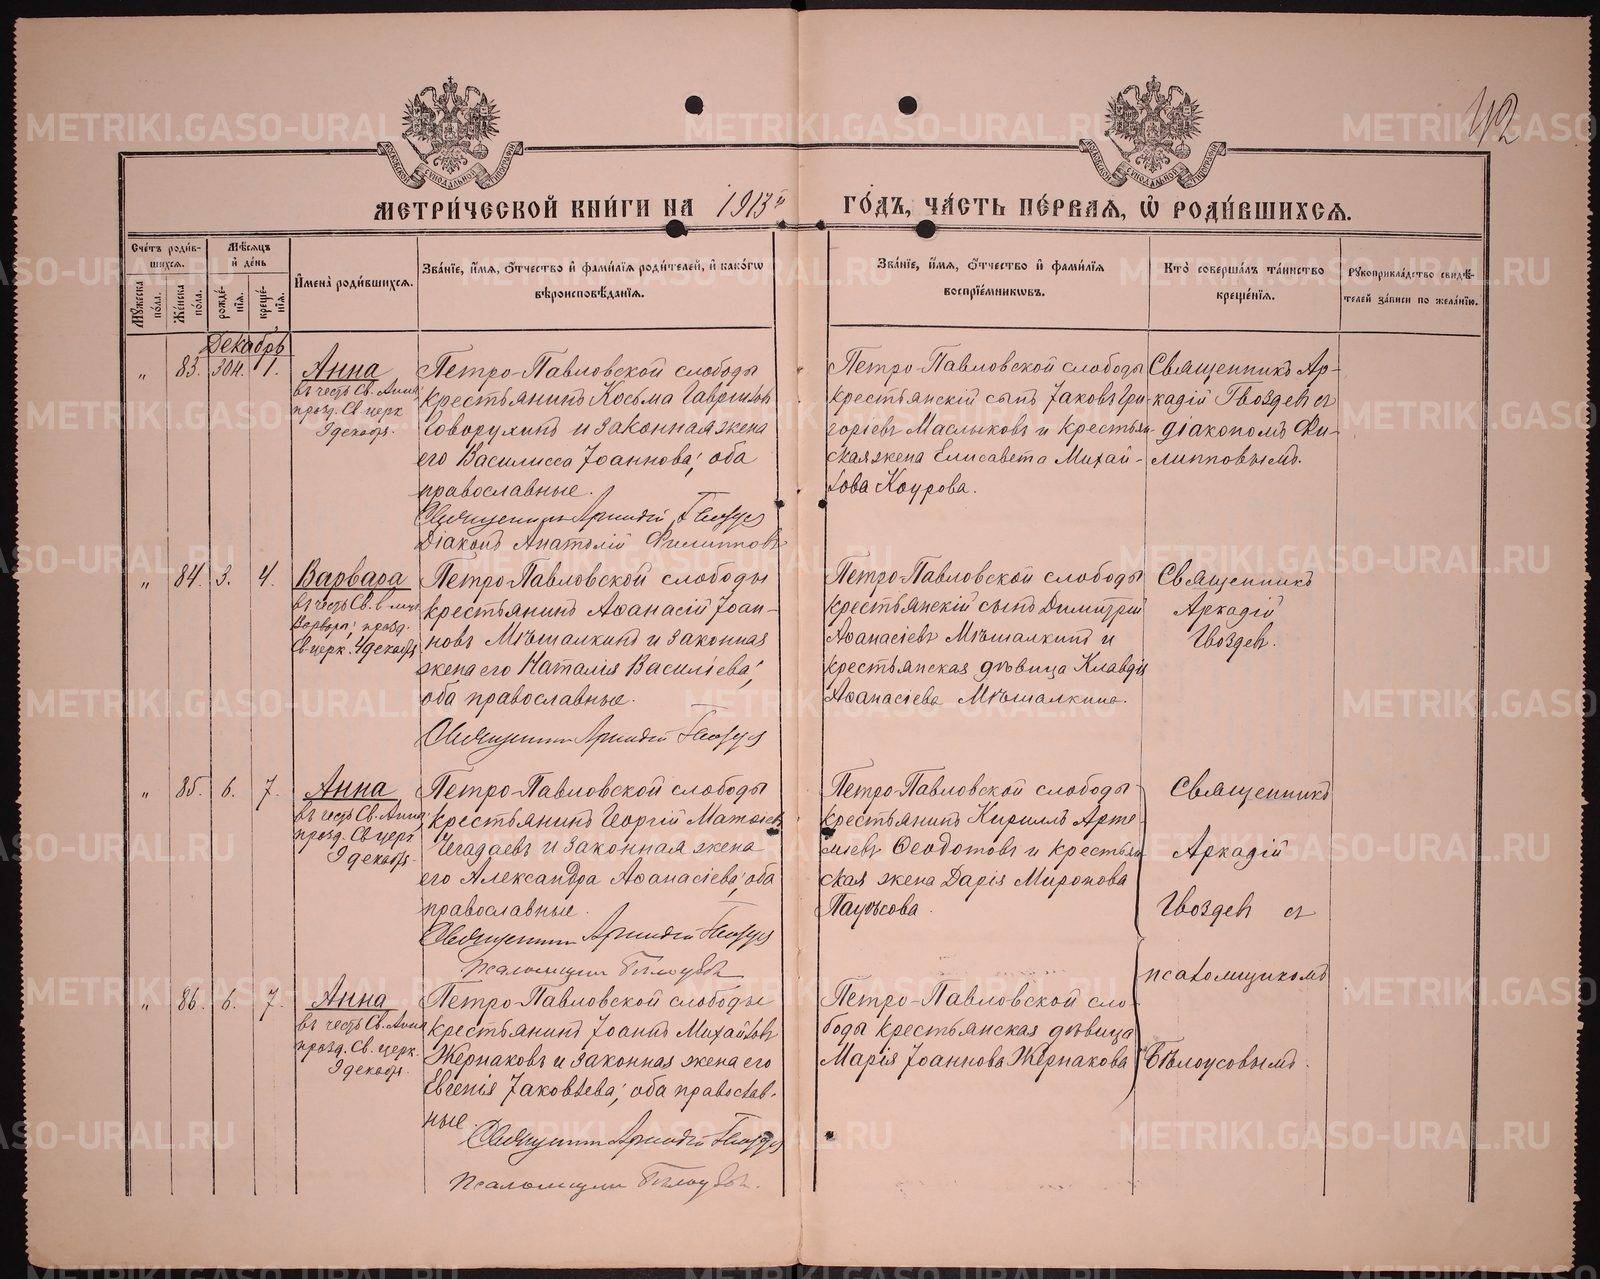 42
МЕТРИ́ЧЕСКОЙ КНИ́ГИ НА 1913й ГО́ДЪ, ЧА́СТЬ ПЕ́РВАЯ, Ѡ҆ РОДИ́ВШИХСЯ.
Сче́тъ роди́в-
шихся.
Му́жеска по́ла.
Же́нска по́ла.
Мѣ́сяцъ
и҆ де́нь
рожде́-
нїя.
креще́-
нїя.
И҆мена̀ роди́вшихся.
Зва́нїе, и҆́мя, ѻ҆́тчество и҆ фами́лїя роди́телей, и҆ како́гѡ
вѣроисповѣ́данїя.
Зва́нїе, и҆́мя, ѻ҆́тчество и҆ фами́лїя
восприе́мникѡвъ.
Кто̀ соверша́лъ та́инство
креще́нїя.
Рꙋкоприкла́дство свидѣ́-
телей за́писи по жела́нїю.
Декабрь
„ 83. 30н. 1.
Анна
въ честь Св. Анны
празд. Св. церк
9 декабр.
Петро-Павловской слободы
крестьянинъ Косьма Гавриловъ
Говорухинъ и законная жена
его Василисса Іоаннова; оба
православные.
Священникъ Аркадій Гвоздевъ
Діаконъ Анатолій Филипповъ
Петро-Павловской слободы
крестьянскій сынъ Іаковъ Гри-
горіевъ Маслыковъ и крестьян-
ская жена Елисавета Михай-
лова Коурова.
Священникъ Ар-
кадій Гвоздевъ съ
діакономъ Фи-
липповымъ.
„ 84. 3. 4.
Варвара
въ честь Св. в-муч.
Варвары; празд.
Св. церк. 4 декабря
Петро-Павловской слободы
крестьянинъ Аѳанасій Іоан-
новъ Мѣшалкинъ и законная
жена его Наталія Василіева;
оба православные.
Священникъ Аркадій Гвоздевъ
Петро-Павловской слободы
крестьянскій сынъ Димитрій
Аѳанасіевъ Мѣшалкинъ и
крестьянская дѣвица Клавдія
Аѳанасіева Мѣшалкина.
Священникъ
Аркадій
Гвоздевъ.
„ 85. 6. 7.
Анна
въ честь Св. Анны
празд. Св. церк
9 декабр.
Петро-Павловской слободы
крестьянинъ Георгій Матѳіевъ
Чегадаевъ и законная жена
его Александра Аѳанасіева; оба
православные.
Священникъ Аркадій Гвоздевъ
Псаломщикъ Бѣлоусовъ
Петро-Павловской слободы
крестьянинъ Кириллъ Арте-
міевъ Ѳеодотовъ и крестьян-
ская жена Дарія Миронова
Паусова.
Священникъ
Аркадій
Гвоздевъ съ
псаломщикомъ
Бѣлоусовымъ.
„ 86. 6. 7.
Анна
въ честь Св. Анны
празд. Св. церк.
9 декабр.
Петро-Павловской слободы
крестьянинъ Іоаннъ Михайловъ
Жернаковъ и законная жена его
Евгенія Іаковлева; оба православ-
ные.
Священникъ Аркадій Гвоздевъ
Псаломщикъ Бѣлоусовъ.
Петро-Павловской сло-
боды крестьянская дѣвица
Марія Іоаннова Жернакова
METRIKI.GASO-URAL.RU